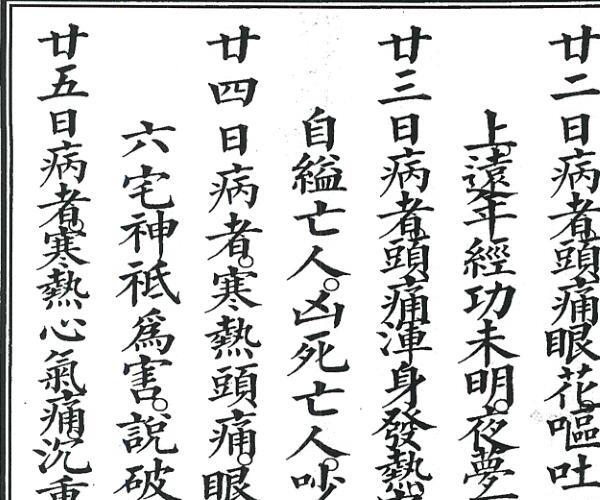 廿二日病者頭痛眼花。嘔吐
上。遠年經功未明。夜夢
廿三日病者頭痛渾身發熱
自縊亡人。凶死亡人。吵
廿四日病者。寒熱頭痛。眼
六宅神祇為害。說破
廿五日病者。寒熱心氣痛。沉重